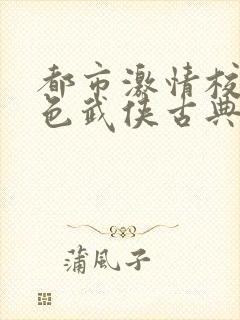 都市激情校
色武侠古典
蒲風子